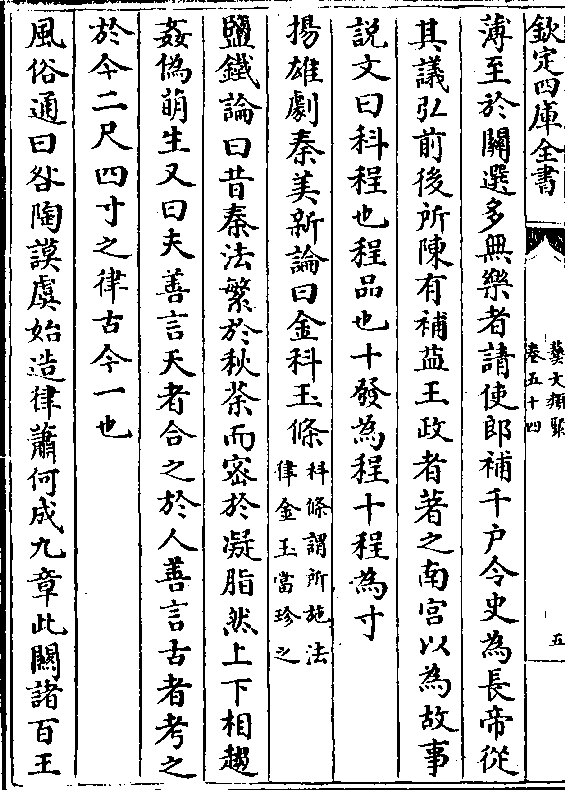 欽定四庫全書
藝文類聚
卷五十四
五
薄至於開選多無樂者請使郎補千户令史為長帝從
其議弘前後所陳有補益王政者著之南宮以為故事
説文曰科程也程品也十發為程十程為寸
揚雄劇秦美新論曰金科玉條科條謂所施法
律金玉當珍之
鹽鐵論曰昔秦法繁於秋荼而密於凝脂然上下相趨
姦偽萌生又曰夫善言天者合之於人善言古者考之
於今二尺四寸之律古今一也
風俗通曰咎陶謨虞始造律蕭何成九章此關諸百王